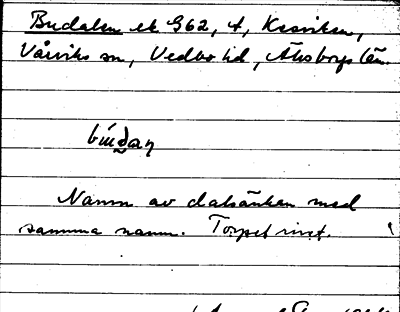 Budalen ek 962, t, Kasviken,
Vårviks sn, Vedbo hd, Älvsborgs län.
búdan
Namn av dalsänkan med
samma namn. Torpet rivet.